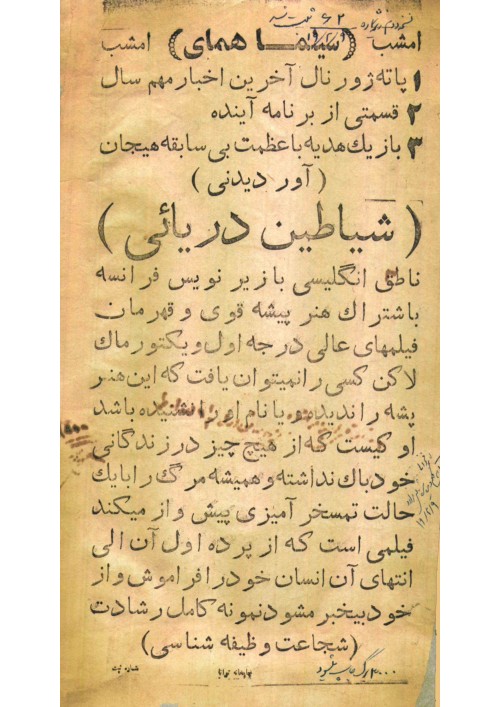 ۶۲ ثبت شد
امشب (سینما همای) امشب
۱ پاته ژورنال آخرین اخبار مهم سال
۲ قسمتی از برنامه آینده
۳ باز یك هدیه با عظمت بی سابقه هیجان
(آور دیدنی)
(شیاطین دریائی)
ناطق انگلیسی با زیر نویس فرانسه
باشتراك هنر پیشه قوی و قهرمان
فیلمهای عالی درجه اول ویکتورماك
لاکن کسی را نمیتوان یافت که این هنر
پشه را ندیده و یا نام او را نشنیده باشد
او کیست که از هیچ چیز در زندگانی
خود باك نداشته و همیشه مرگ را با یك
حالت تمسخر آمیزی پیش واز میکند
فیلمی است که از پرده اول آن الی
انتهای آن انسان خود را فراموش و از
خود بیخبر مشود نمونه کامل رشادت
(شجاعت وظیفه شناسی)
چاپخانه
نمره ثبت
برگ چاپ میشود